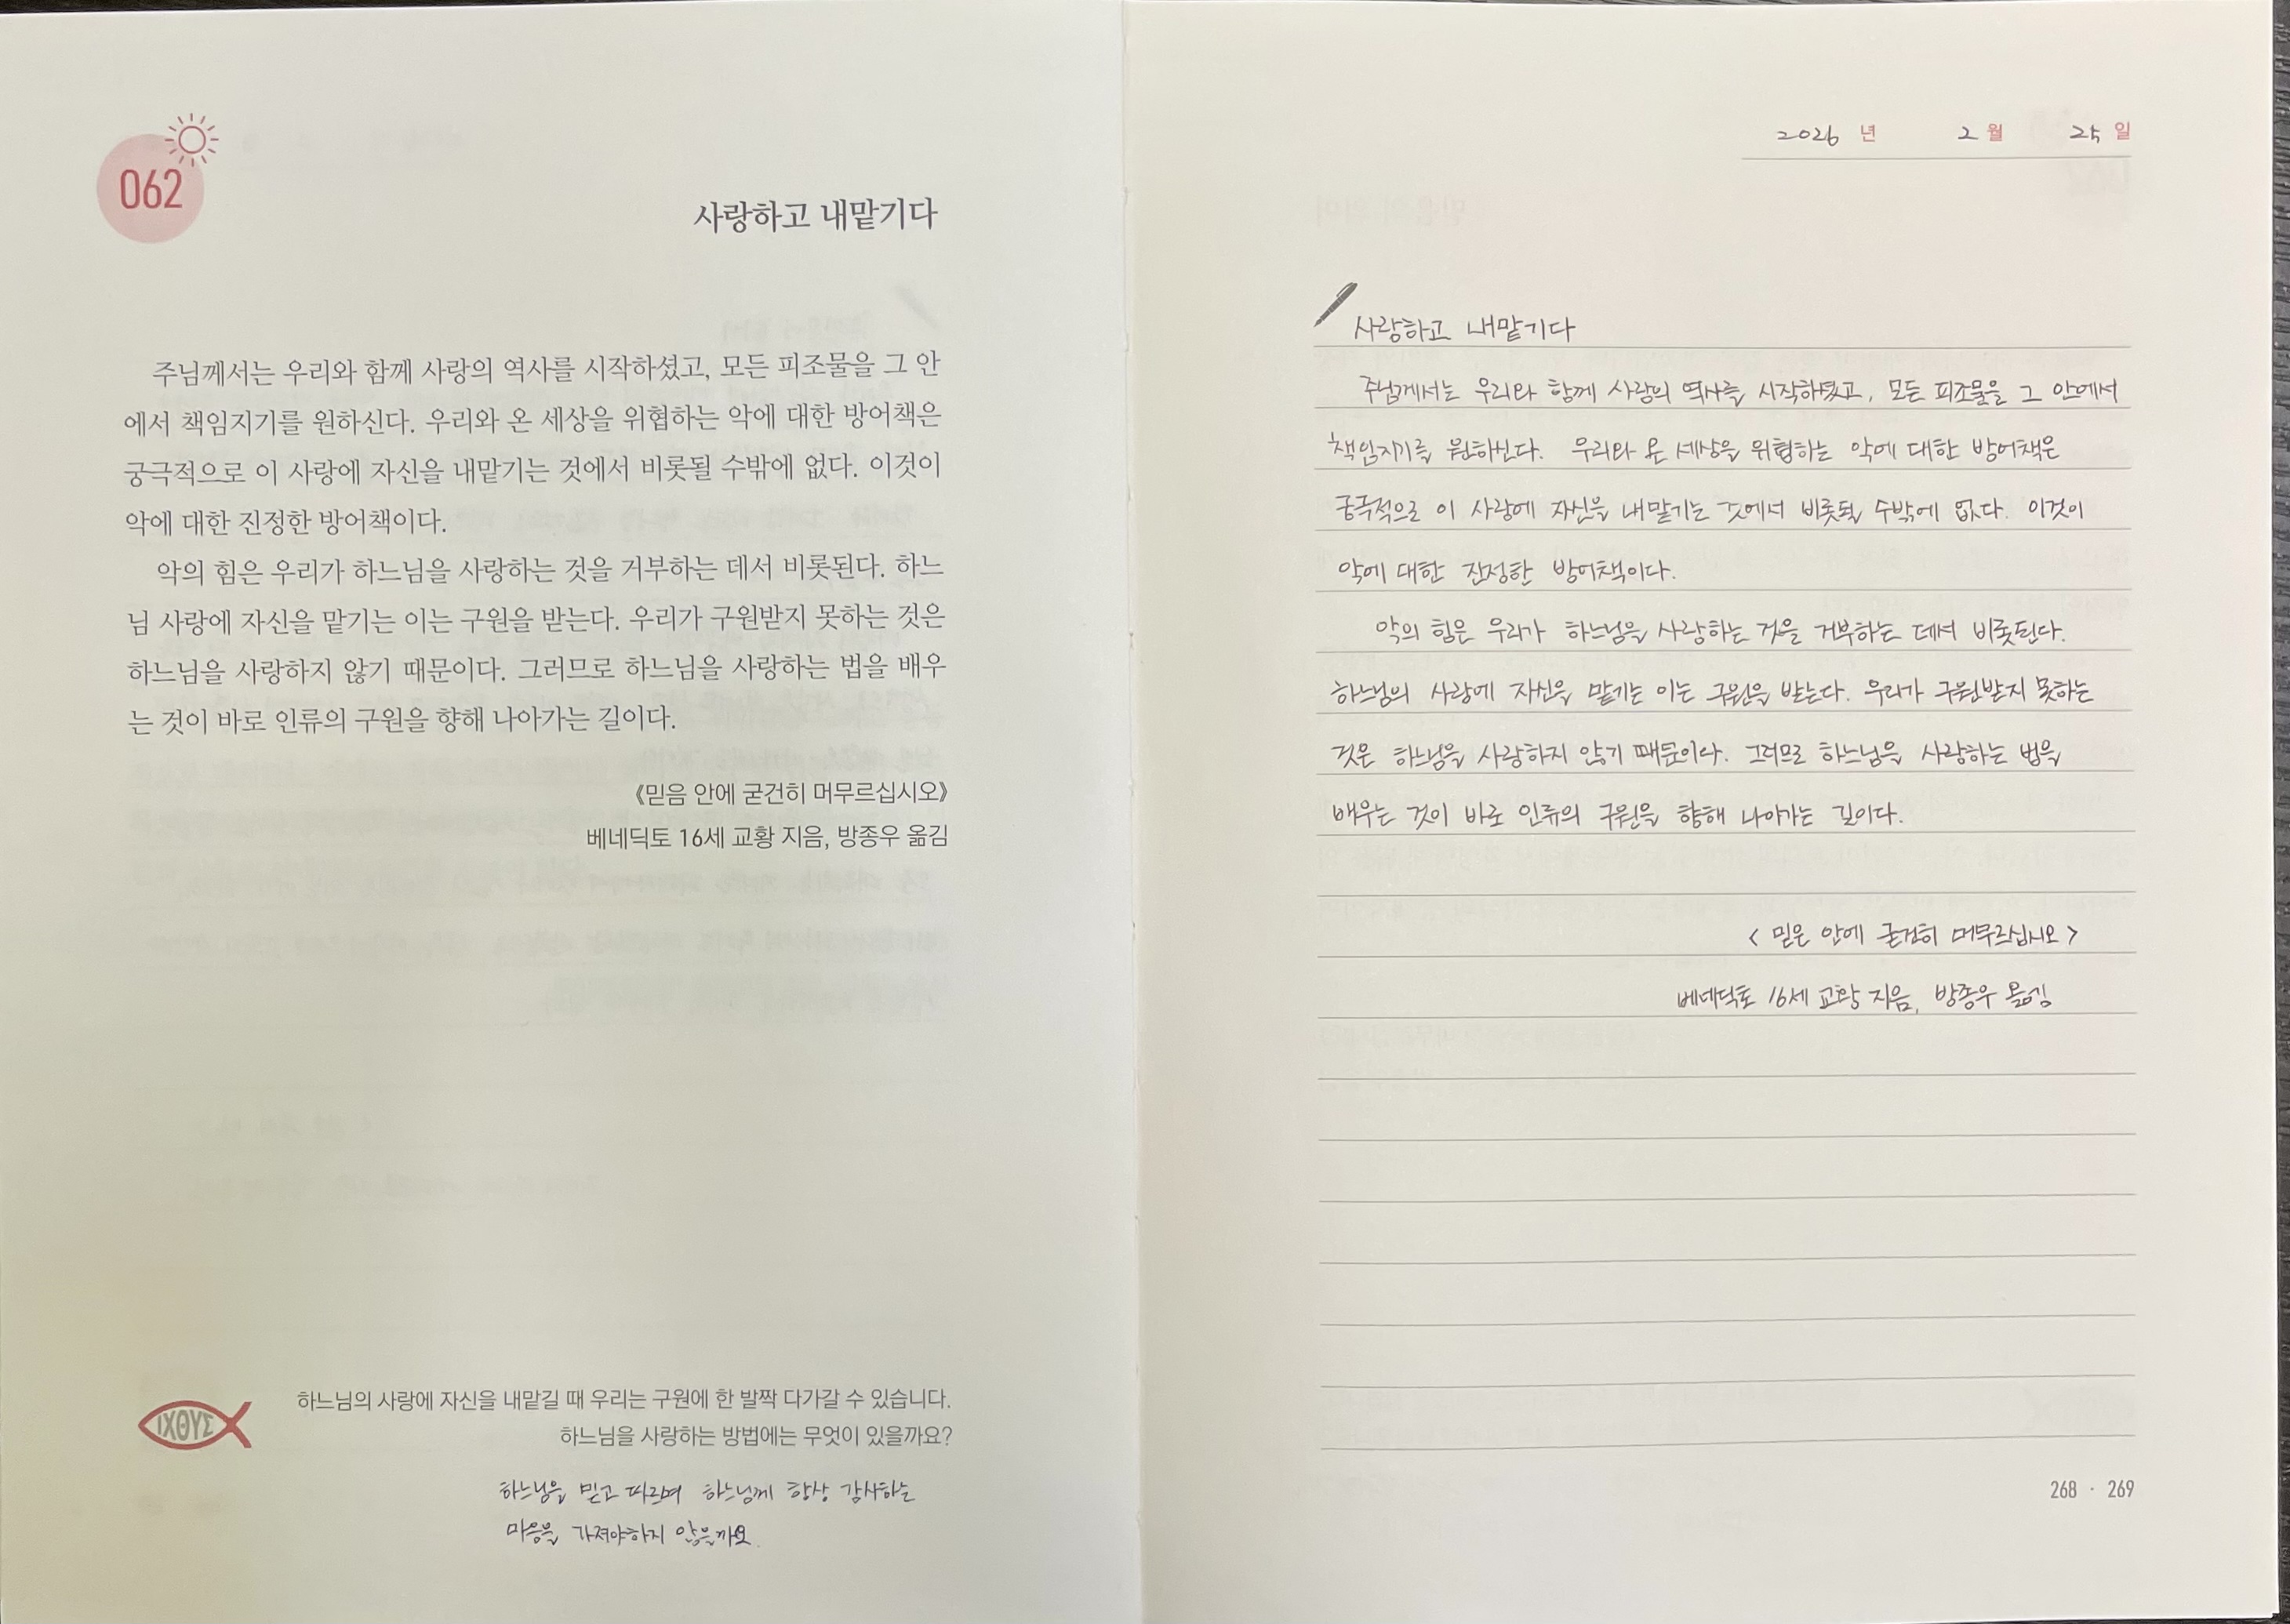 062
사랑하고 내맡기다
주님께서는 우리와 함께 사랑의 역사를 시작하셨고, 모든 피조물을 그 안
에서 책임지기를 원하신다. 우리와 온 세상을 위협하는 악에 대한 방어책은
궁극적으로 이 사랑에 자신을 내맡기는 것에서 비롯될 수밖에 없다. 이것이
악에 대한 진정한 방어책이다.
악의 힘은 우리가 하느님을 사랑하는 것을 거부하는 데서 비롯된다. 하느
님 사랑에 자신을 맡기는 이는 구원을 받는다. 우리가 구원받지 못하는 것은
하느님을 사랑하지 않기 때문이다. 그러므로 하느님을 사랑하는 법을 배우
는 것이 바로 인류의 구원을 향해 나아가는 길이다.
《믿음 안에 굳건히 머무르십시오》
베네딕토 16세 교황 지음, 방종우 옮김
ΙΧΘΥΣ
하느님의 사랑에 자신을 내맡길 때 우리는 구원에 한 발짝 다가갈 수 있습니다.
하느님을 사랑하는 방법에는 무엇이 있을까요?
하느님을 믿고 따르며 하느님께 항상 감사하는
마음을 가져야하지 않을까요.
2026 년 2 월 25 일
사랑하고 내맡기다
주님께서는 우리와 함께 사랑의 역사를 시작하셨고, 모든 피조물을 그 안에서
책임지기를 원하신다. 우리와 온 세상을 위협하는 악에 대한 방어책은
궁극적으로 이 사랑에 자신을 내맡기는 것에서 비롯될 수밖에 없다. 이것이
악에 대한 진정한 방어책이다.
악의 힘은 우리가 하느님을 사랑하는 것을 거부하는 데서 비롯된다.
하느님의 사랑에 자신을 맡기는 이는 구원을 받는다. 우리가 구원받지 못하는
것은 하느님을 사랑하지 않기 때문이다. 그러므로 하느님을 사랑하는 법을
배우는 것이 바로 인류의 구원을 향해 나아가는 길이다.
< 믿음 안에 굳건히 머무르십시오 >
베네딕토 16세 교황 지음, 방종우 옮김
268 · 269